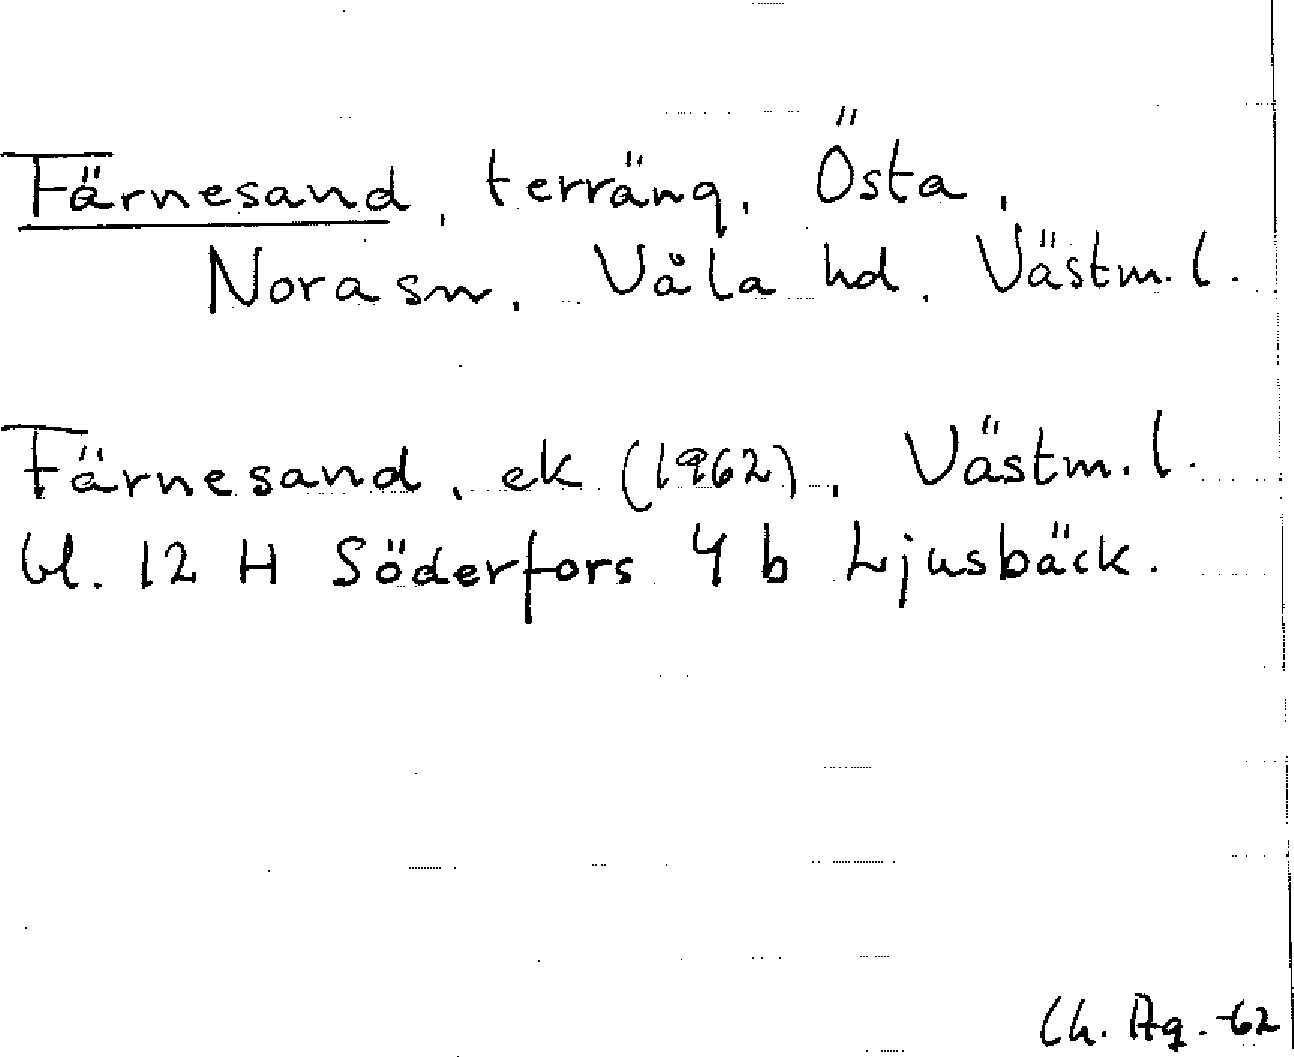 Färnesand, terräng, Östa,
Nora sn, Våla hd, Västm. l.
Färnesand, ek (1962), Västm. l.
bl. 12 H Söderfors 4 b Ljusbäck.
Ch. Ag. -62